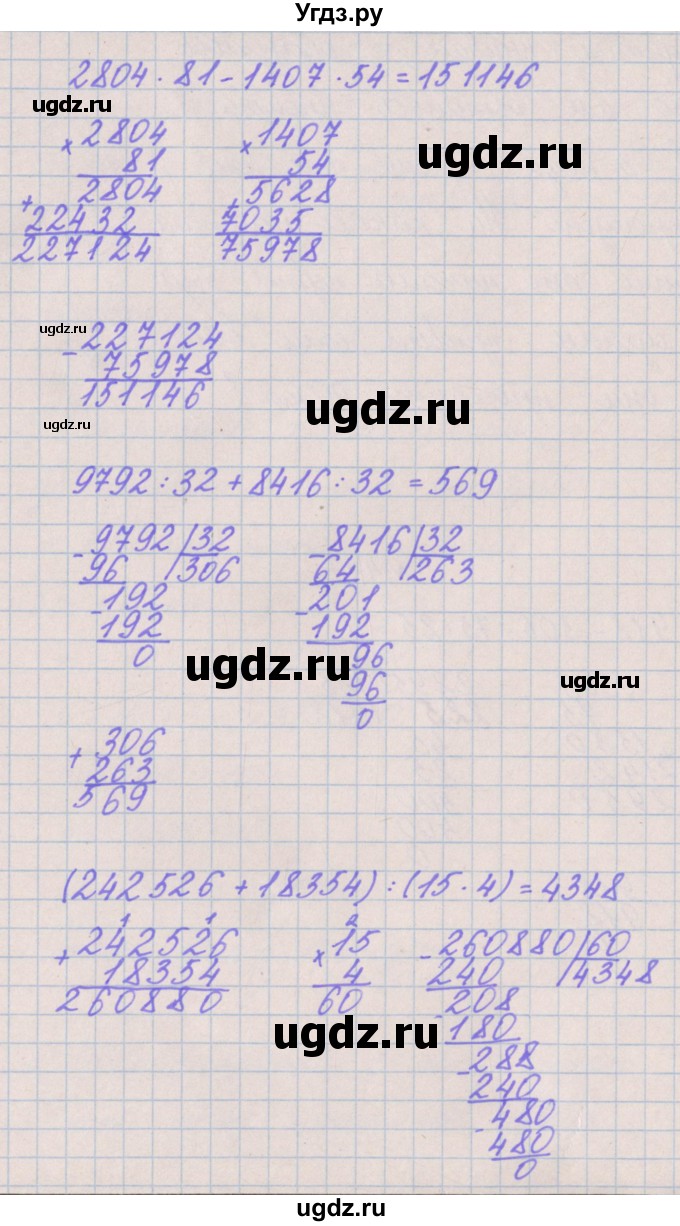 Угдз.ру
2804 · 81 - 1407 · 54 = 151146
ugdz.ru
× 2804
81
2804
+ 22432
227124
× 1407
54
5628
+ 7035
75978
ugdz.ru
ugdz.ru
- 227124
75978
151146
ugdz.ru
ugdz.ru
9792 : 32 + 8416 : 32 = 569
- 9792 | 32
96 | 306
- 192
192
0
- 8416 | 32
64 | 263
- 201
192
96
96
0
ugdz.ru
ugdz.ru
+ 306
263
569
(242526 + 18354) : (15 · 4) = 4348
1 1
+ 242526
18354
260880
2
× 15
4
60
- 260880 | 60
240 | 4348
- 208
180
- 288
240
- 480
480
0
ugdz.ru
ugdz.ru